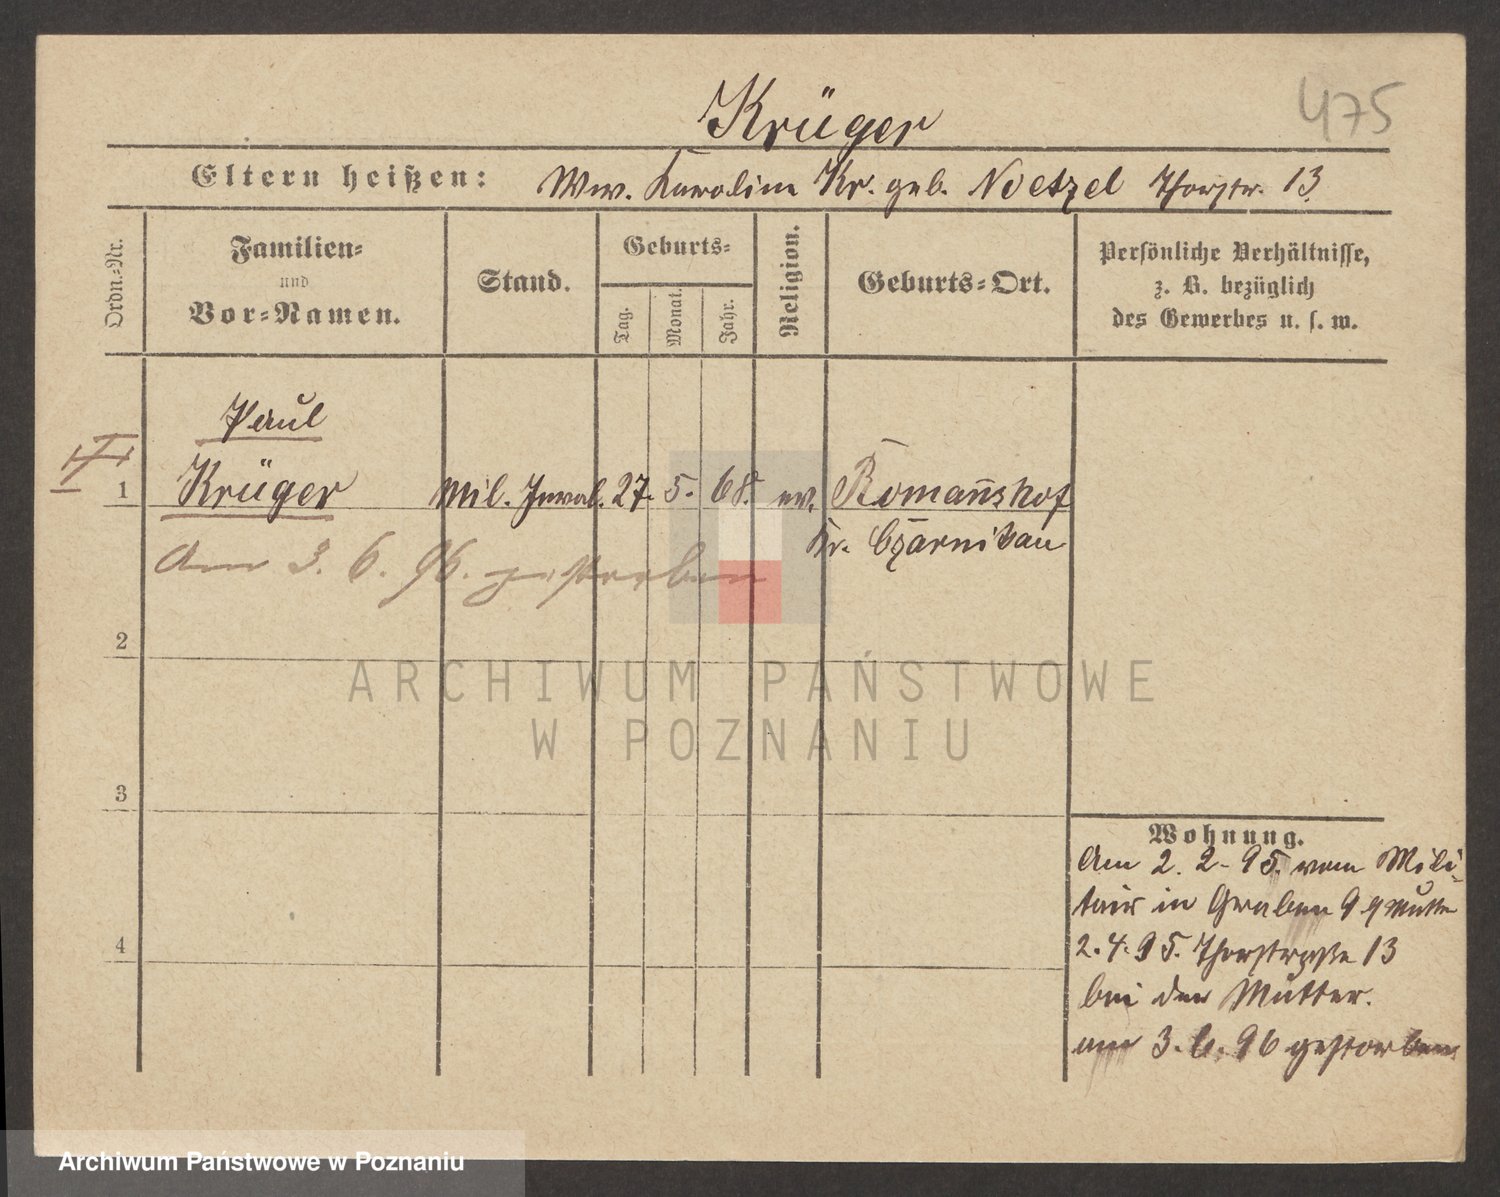 475
Krüger
Eltern heißen: Ww. Karoline Kr. geb. Noetzel Thorstr. 13
Ordn.-Nr.
Familien-
und
Vor-Namen.
Stand.
Geburts-
Tag.
Monat.
Jahr.
Religion.
Geburts-Ort.
Persönliche Verhältnisse,
z. B. bezüglich
des Gewerbes u. s. w.
Paul
1 Krüger Mil. Inval. 27. 5. 68. ev. Romanshof
Kr. Czarnikau
Am 3. 6. 96. gestorben
2
3
4
Wohnung.
Am 2. 2. 95. vom Mili-
tair in Graben 9 Mutter
2. 4. 95. Thorstraße 13
bei der Mutter.
am 3. 6. 96 gestorben
ARCHIWUM PAŃSTWOWE
W POZNANIU
Archiwum Państwowe w Poznaniu